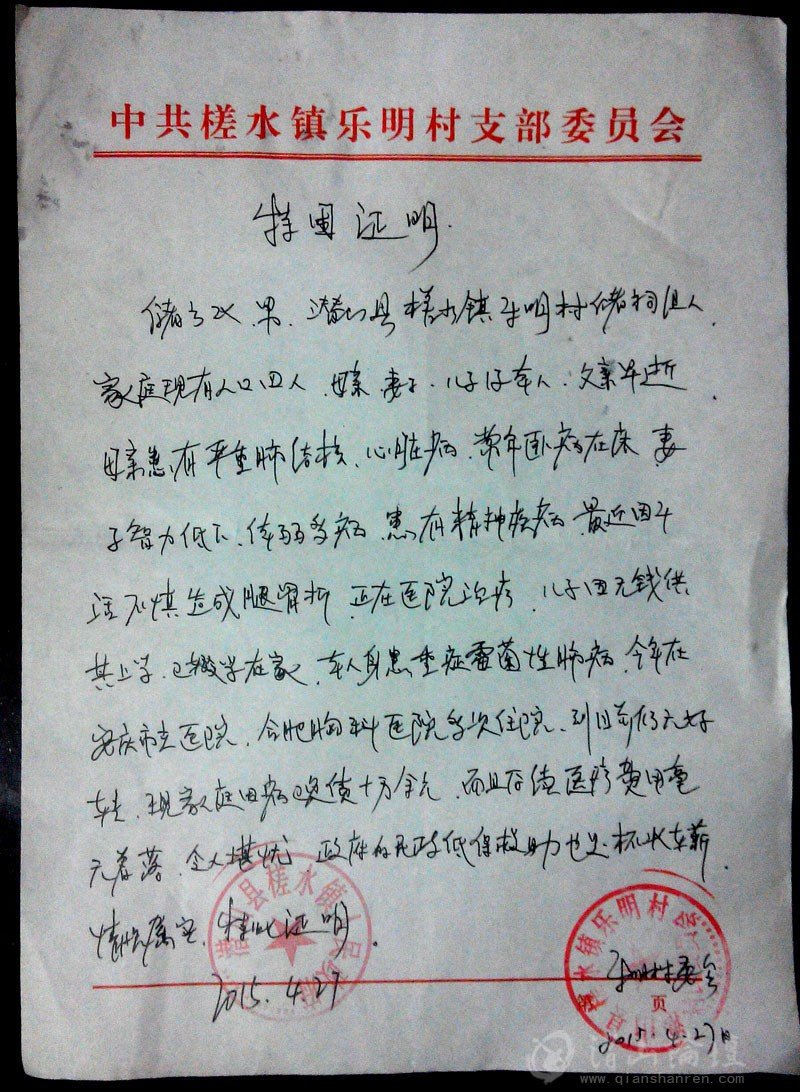 中共槎水镇乐明村支部委员会
特困证明.
储 男.潜山县槎水镇乐明村储祠组人.
家庭现有人口四人.母亲.妻子.儿子仔本人.父亲早逝
母亲患有严重肺结核、心脏病、常年卧病在床.妻
子智力低下、体弱多病.患有精神疾病.最近因干
活不慎造成腿骨折.正在医院治疗.儿子因无钱供
其上学.已辍学在家.本人身患重症霉菌性肺病.今年在
安庆市立医院、合肥胸科医院多次住院.到目前仍无好
转.现家庭因病已负债十万余元.而且后续医疗费用毫
无着落.令人堪忧.政府的民政低保救助也是杯水车薪
情况属实.特此证明.
2015.4.27
乐明村委会
第 页
2015.4.27日
潜山县槎水镇人民政府
槎水镇乐明村
www.qianshanren.com